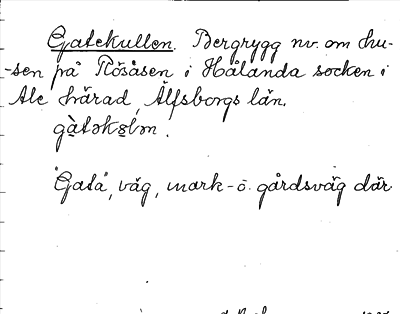 Gatekullen. Bergrygg nv. om hu-
-sen på Rösåsen i Hålanda socken i
Ale härad, Älfsborgs län.

"Gata", väg, mark- o. gårdsväg där